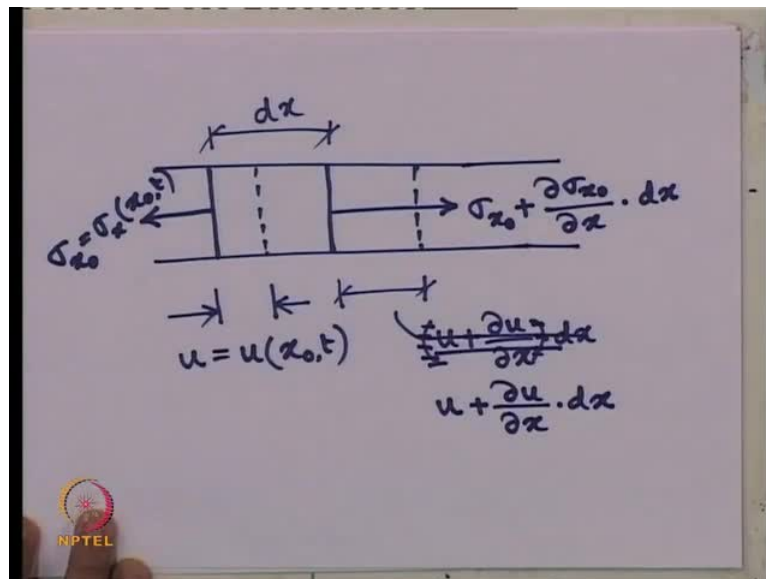 dx
σx₀ = σx(x₀,t)
σx₀ + ∂σx₀/∂x · dx
u = u(x₀,t)
u + ∂u/∂x dx
u + ∂u/∂x · dx
NPTEL